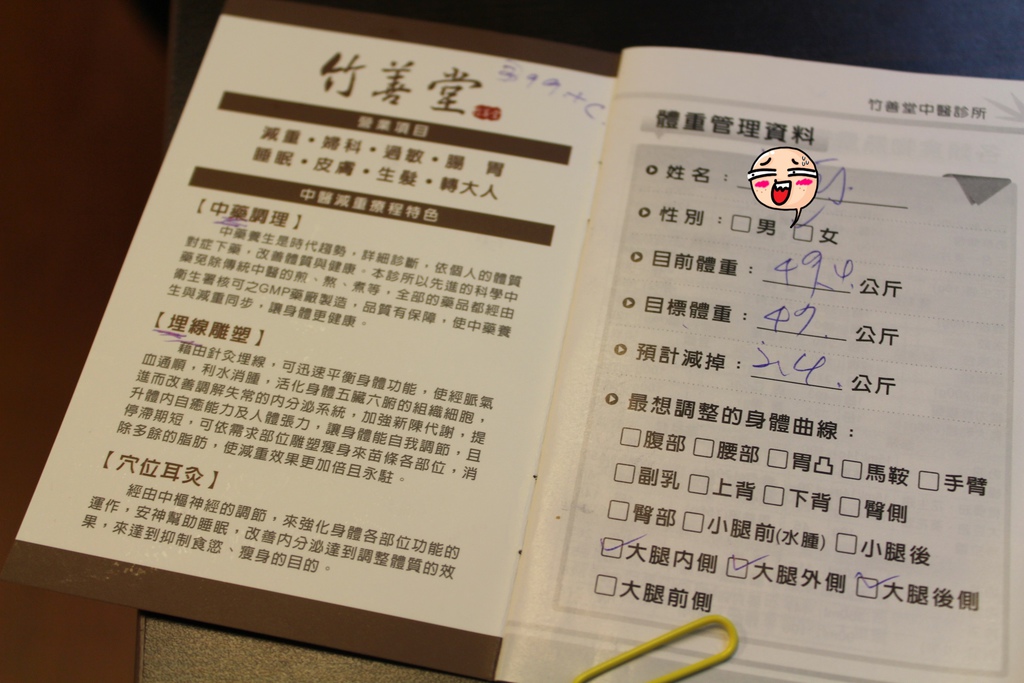 竹善堂
營業項目
減重・婦科・過敏・腸 胃
睡眠・皮膚・生髮・轉大人
中醫減重療程特色
【中藥調理】
中藥養生是時代趨勢，詳細診斷，依個人的體質
對症下藥，改善體質與健康。本診所以先進的科學中
藥免除傳統中醫的煎、熬、煮等，全部的藥品都經由
衛生署核可之GMP藥廠製造，品質有保障，使中藥養
生與減重同步，讓身體更健康。
【埋線雕塑】
藉由針灸埋線，可迅速平衡身體功能，使經脈氣
血通順，利水消腫，活化身體五臟六腑的組織細胞，
進而改善調解失常的內分泌系統，加強新陳代謝，提
升體內自癒能力及人體張力，讓身體能自我調節，且
停滯期短，可依需求部位雕塑瘦身來苗條各部位，消
除多餘的脂肪，使減重效果更加倍且永駐。
【穴位耳灸】
經由中樞神經的調節，來強化身體各部位功能的
運作，安神幫助睡眠，改善內分泌達到調整體質的效
果，來達到抑制食慾、瘦身的目的。
竹善堂中醫診所
體重管理資料
姓名：
性別：□男 □女
目前體重：49.4 公斤
目標體重：47 公斤
預計減掉：2.4 公斤
最想調整的身體曲線：
□腹部 □腰部 □胃凸 □馬鞍 □手臂
□副乳 □上背 □下背 □臀側
□臀部 □小腿前(水腫) □小腿後
☑大腿內側 ☑大腿外側 ☑大腿後側
□大腿前側